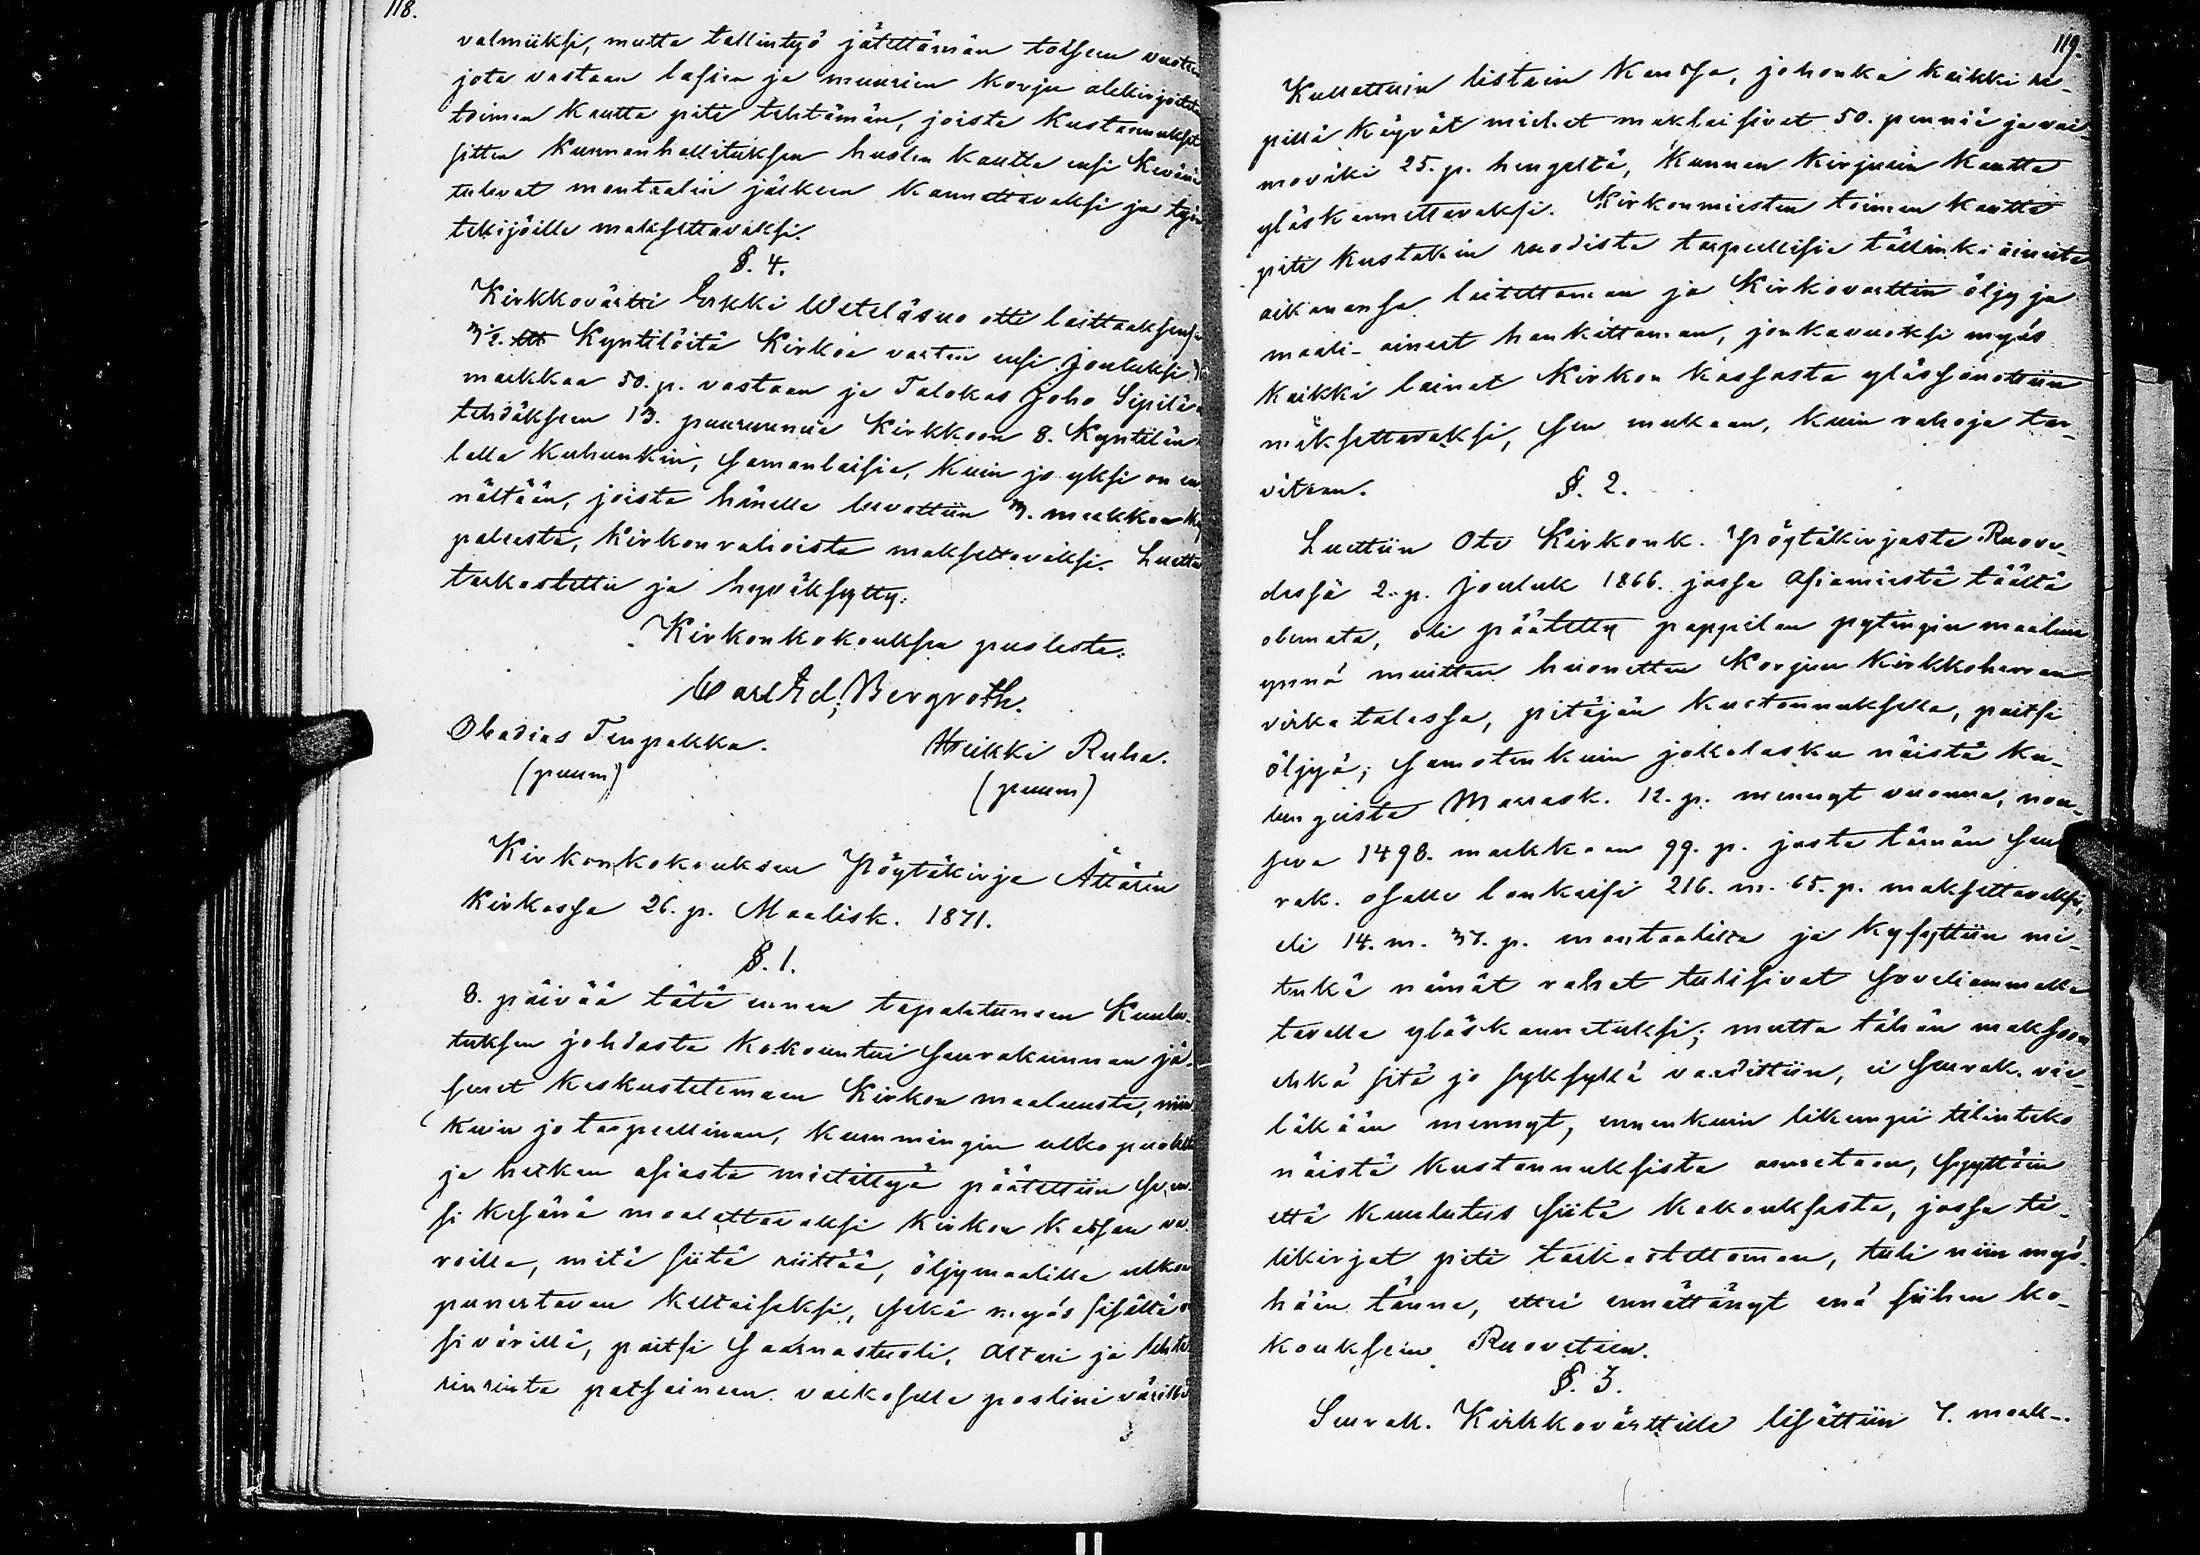 118.
valmiiksi, mutta tallintyö jätettämän toiseen vuoteen
jota vastaan lasien ja muurien korju allekirjoitetun
toimen kautta piti tehtämän, joista kustannukset
sitten kunnanhallituksen huolen kautta ensi kevänä
tulevat mantaalin jälkeen kannettavaksi ja työn
tekijöille maksettavaksi.
§. 4.
Kirkkovärtti Erkki Weteläsuo otti laittaaksensa
3½ ltt Kyntilöitä Kirkoa varten ensi jouluksi
markkaa 50. p. vastaan ja Talokas Joho Sipilä
tehdäksem 13. puurunnua Kirkkoon 8. Kyntilän
lalla kuhunkin, samanlaisia, kuin jo yksi on en
nältään, joista hänelle luvattiin 3. markkaa
paleasta, Kirkon rahoista maksettavaksi. Luettu
tarkastettu ja hyväksytty:
Kirkonkokouksen puolesta:
Carl Ed; Bergroth.
Obadias Tenpakka. Heikki Ruha.
(puum) (puum)
Kirkonkokouksen Pöytäkirja Ättärin
Kirkossa 26. p. Maalisk. 1871.
§. 1.
8. päivää tätä ennen tapahtuneen Kuulu-
tuksen johdosta kokountui seurakunnan jä-
senet keskustelemaan Kirkon maalausta, niin
kuin jo tarpeellinen, kummingin ulkopuolelta
ja hetken asiasta mietittyä päätettiin se, en-
si kesänä maalattavaksi Kirkon kassan va-
roilla, mitä siitä riittää, öljymaalilla ulkoa
punertavan keltaiseksi, sekä myös sisältä
si värillä, paitsi saarnastuoli, altari ja lehte
rin rinta patsaineen valkosella posliini värillä
119.
Kullattuin listain kanssa, johonka kaikki ri-
pillä käyvät miehet maksaisivat 50. penniä ja vai-
moväki 25. p. hengeltä, kunnan kirjurin kautta
yläskannettavaksi. Kirkonmiesten toimen kautta
piti kustakin ruodista tarpeellisia tällinki aineita
aikanansa laitettaman ja Kirkovärttin öljy ja
maali-aineet hankittaman, jonkavuoksi myös
kaikki lainat Kirkon kassasta yläs sanottiin
mäksettavaksi, sen mukaan, kuin rahoja tar-
vitaan.
§. 2.
Luettiin Ote Kirkonk. Pöytäkirjasta Ruove-
dessä 2. p. Jouluk 1866. jossa asiamiestä täältä
olemata, oli päätetty pappilan pytingin maalaus
ynnä muitten huonetten korjuu Kirkkoherran
virkatalossa, pitäjän kustannuksella, paitsi
öljyä; samoten kuin jakolasku näistä ku-
lungista Marrask. 12. p. mennyt vuonna, nou-
seva 1498. markkaan 99. p. josta tämän seu-
rak. osalle lankeisi 216. m. 65. p. maksettavaksi,
eli 14. m. 37. p. mantaalilta ja kysyttiin mi-
tenkä nämät rahat tulisivat soveliammalla
tavalla yläskannetuksi; mutta tähän maksoon
ehkä sitä jo syksyllä vaadittiin, ei seurak. vie-
läkään mennyt, ennenkuin likempi tilinteko
näistä kustannuksista annetaan, syyttäin
että kuulutus siitä kokouksesta, jossa ti-
likirjat piti tarkastettaman, tuli niin myö-
hään tänne, ettei ennättänyt enä siihen ko-
koukseen Ruoveteen.
§. 3.
Seurak. Kirkkovärttille lisättiin 4. mark-